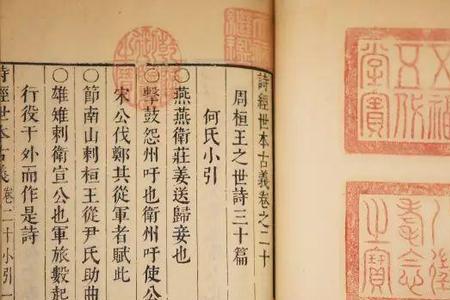 五福五代堂寶
八徵耄念之寶
詩經世本古義卷之二十
周桓王之世詩三十篇
何氏小引
○燕燕衛莊姜送歸妾也
○擊鼓怨州吁也衛州吁使公
宋公伐鄭其從軍者賦此
○節南山刺桓王從尹氏助曲
○雄雉刺衛宣公也軍旅數起
行役于外而作是詩
詩經世本古義 卷二十小引 一